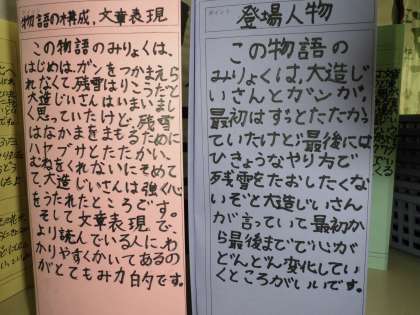 物語の構成,文章表現
この物語のみりょくは、
はじめは、ガンをつかまえら
れなくて、残雪はりこうだと
大造じいさんはいまいまし
く思っていたけど、残雪
はなかまをまもるために
ハヤブサとたたかい、
むねをくれないにそめて
て、大造じいさんは強く心
をうたれたところです。
そして文章表現で、
より読んでいる人に、わ
かりやすくかいてあるの
がとてもみ力的です。
ポイント
登場人物
この物語の
みりょくは、大造じ
いさんとガンが、
最初はずっとたたかっ
ていたけど、最後には
ひきょうなやり方で
残雪をたおしたくな
いぞと大造じいさん
が言っていて最初か
ら最後までで心が
どんどん変化してい
くところがいいです。